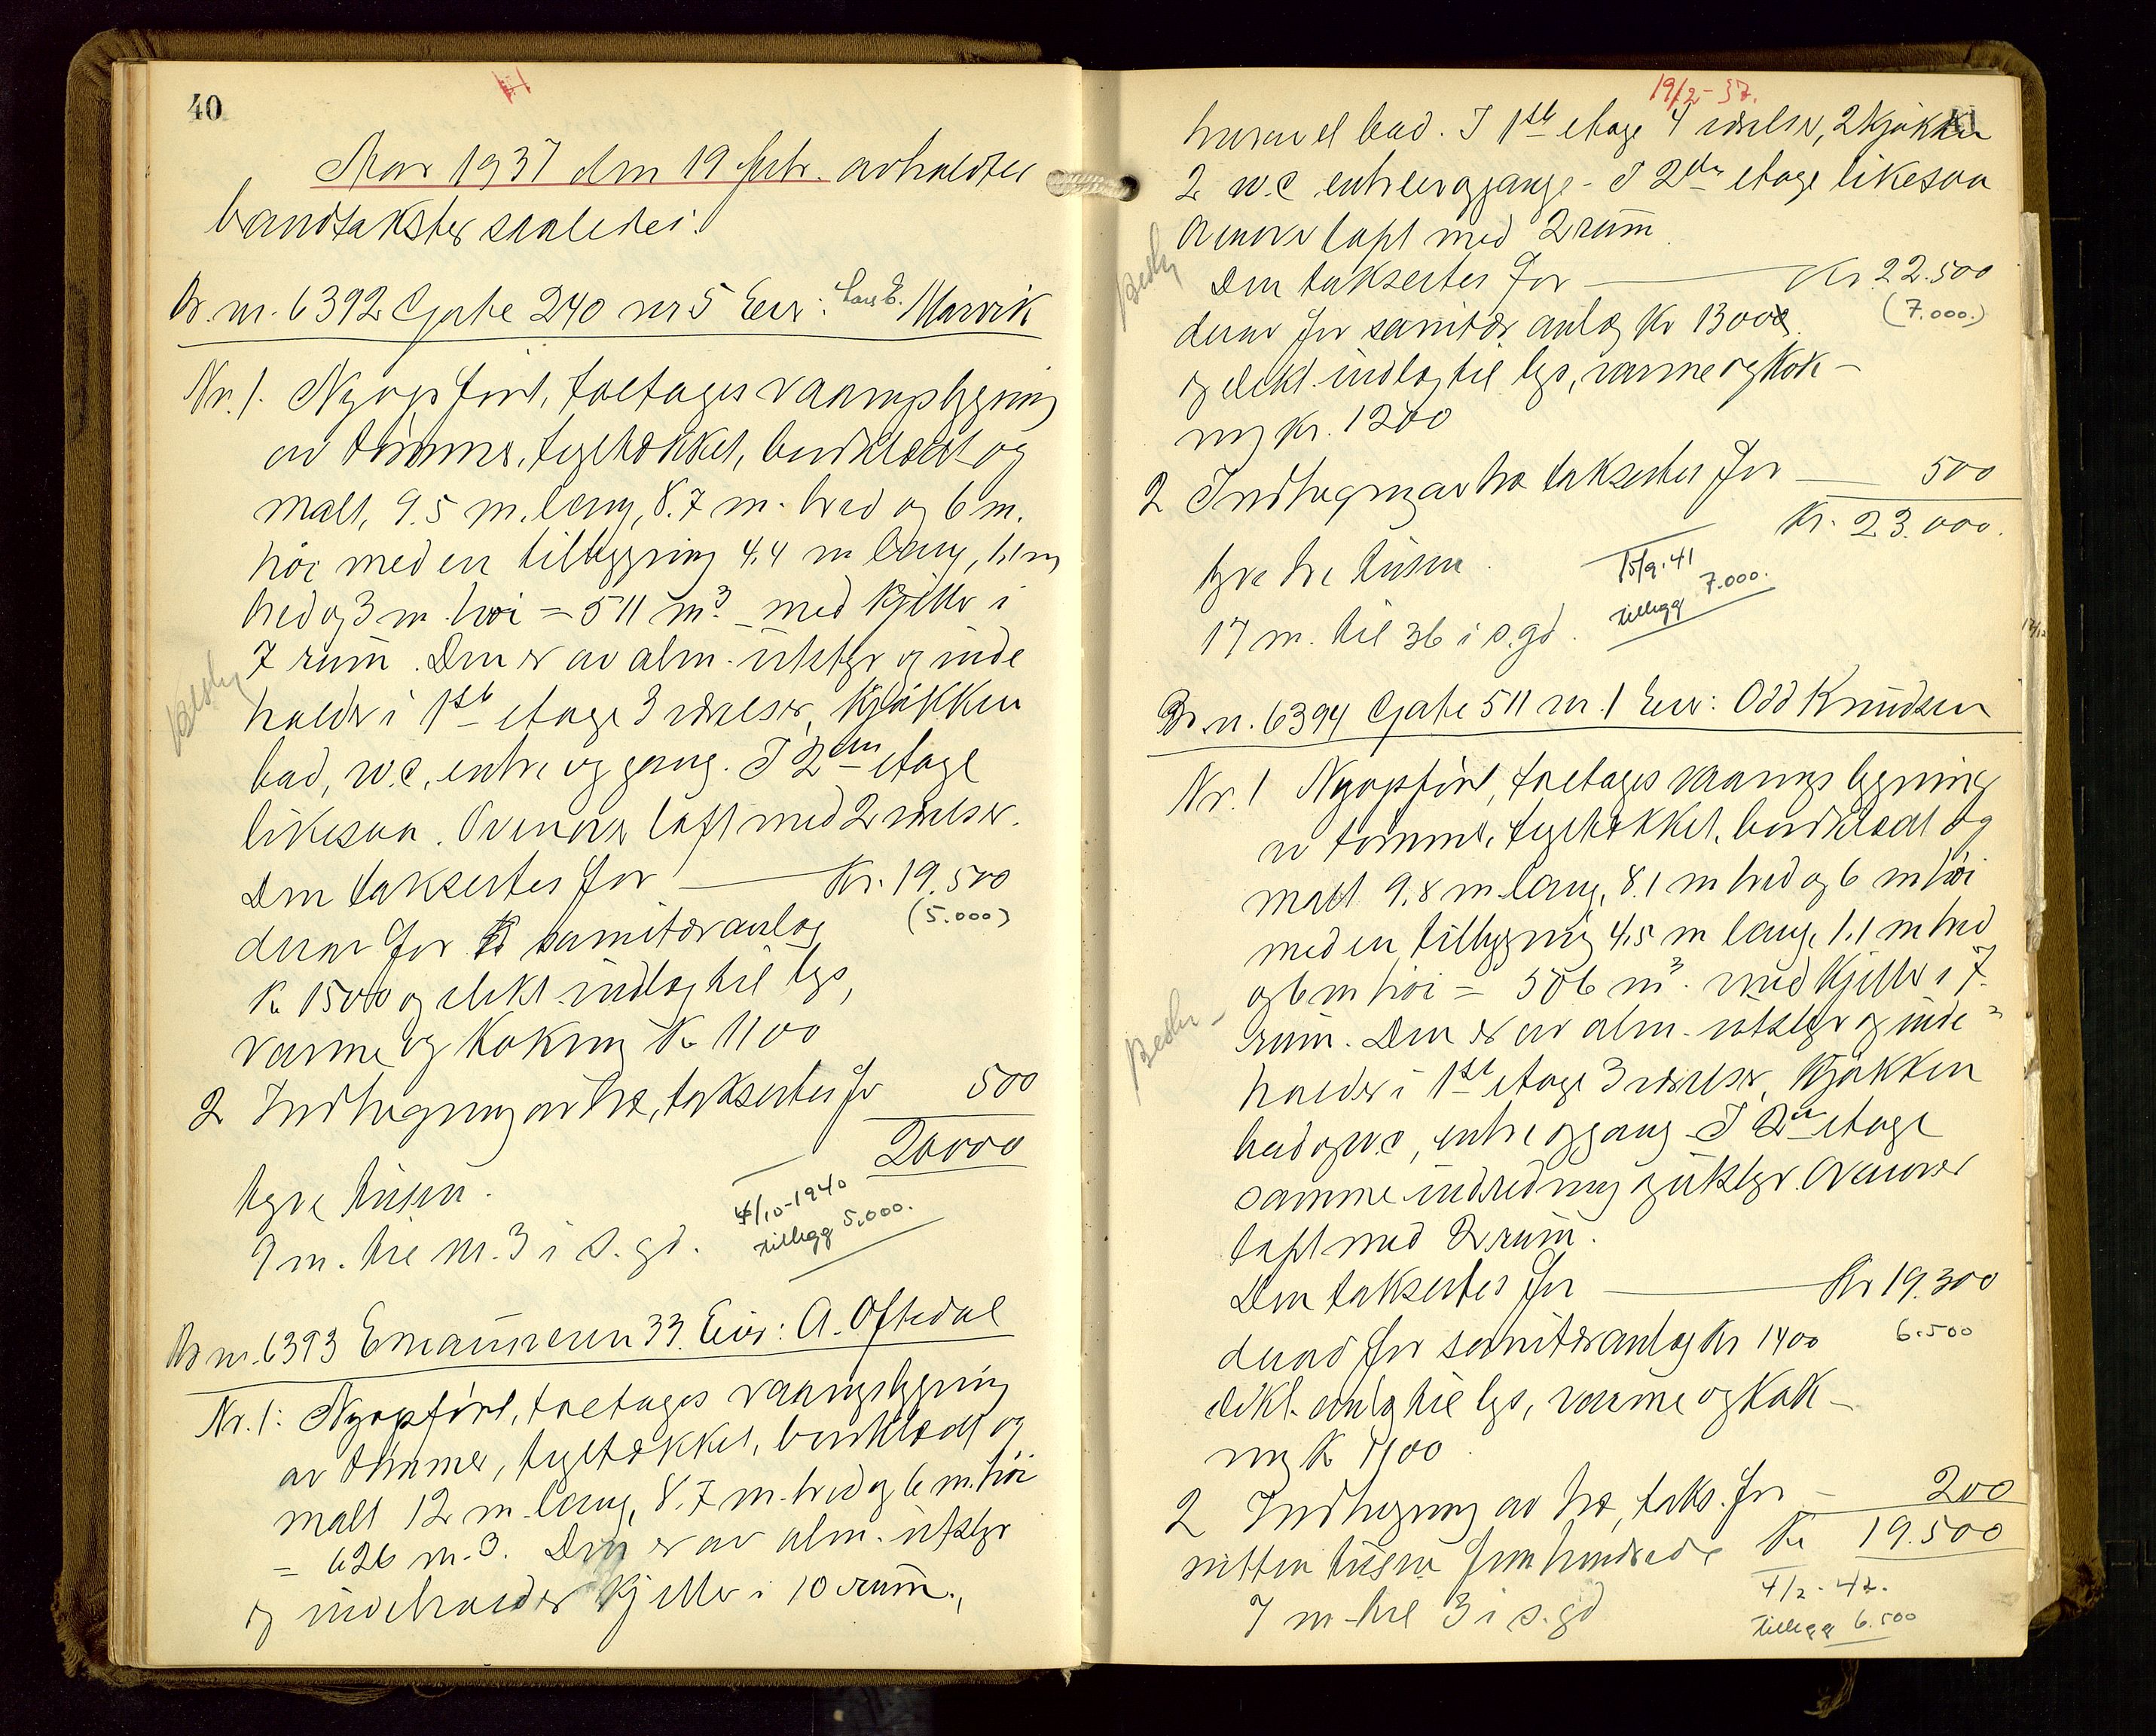 40
Aar 1937 den 19 febr. avholdtes
brandtakster saaledes:
Br. nr. 6392 Gate 240 nr 5 Eier: Marvik
Nr. 1. Nyopført, toetages vaaningsbygning
av tømmer, tegltækket, bordklædt og
malt, 9.5 m. lang, 8.7 m. bred og 6 m.
høi med en tilbygning 4.4 m lang, 1.1 m
bred og 3 m. høi = 511 m³ med kjeller i
7 rum. Den er av alm. utstyr og inde
holder i 1ste etage 3 værelser, kjøkken
bad, w.c, entre og gang. I 2den etage
likesaa. Ovenover loft med 2 værelser.
Den taksertes for — Kr. 19.500
(5.000)
derav for sanitæranlæg
Kr 1500 og elekt. indlæg til lys,
varme og kokning Kr 1100
2 Indhegning av træ, taksertes for 500
20000
tyve tusen.
9 m. til nr. 3 i s. gd.
4/10-1940
tillegg 5.000.
Br nr. 6393 Emausveien 33. Eier: A. Oftedal
Nr. 1: Nyopført, toetages vaaningsbygning
av tømmer, tegltækket, bordklædt og
malt 12 m. lang, 8.7 m. bred og 6 m. høi
= 626 m.3. Den er av alm. utstyr
og indeholder kjeller i 10 rum.,
19/2-37.
41
hvorav el bad. I 1ste etage 4 værelser, 2 kjøkken
2 w.c entreer og gange. I 2den etage likesaa
Ovenover loft med 2 rum
Den taksertes for — Kr 22.500
(7.000.)
derav for sanitær anlæg Kr 1300
og elekt. indlæg til lys, varme og kok-
ning Kr. 1200
2 Indhegning av træ taksertes for — 500
Kr. 23.000.
tyve tre tusen.
15/9.41
tillegg 7.000.
17 m. til 36 i s. gd.
Br. n. 6394 Gate 511 nr. 1 Eier: Odd Knudsen
Nr. 1 Nyopført, toetages vaaningsbygning
av tømmer, tegltækket, bordklædt og
malt 9.8 m. lang, 8.1 m bred og 6 m høi
med en tilbygning 4.5 m lang, 1.1 m bred
og 6 m høi = 506 m³. med kjeller i 7
rum. Den er av alm. utstyr og inde-
holder i 1ste etage 3 værelser, kjøkken
bad og w.c, entre og gang. I 2den etage
samme indredning og utstyr. Ovenover
loft med 2 rum.
Den taksertes for — Kr 19.300
6.500
derav for sanitæranlæg Kr 1400
elekt. anlæg til lys, varme og kok-
ning Kr 1100.
2 Indhegning av træ, taks. for — 200
nitten tusen fem hundrede Kr 19.500
7 m. til 3 i s. gd
4/2-42.
tillegg 6.500